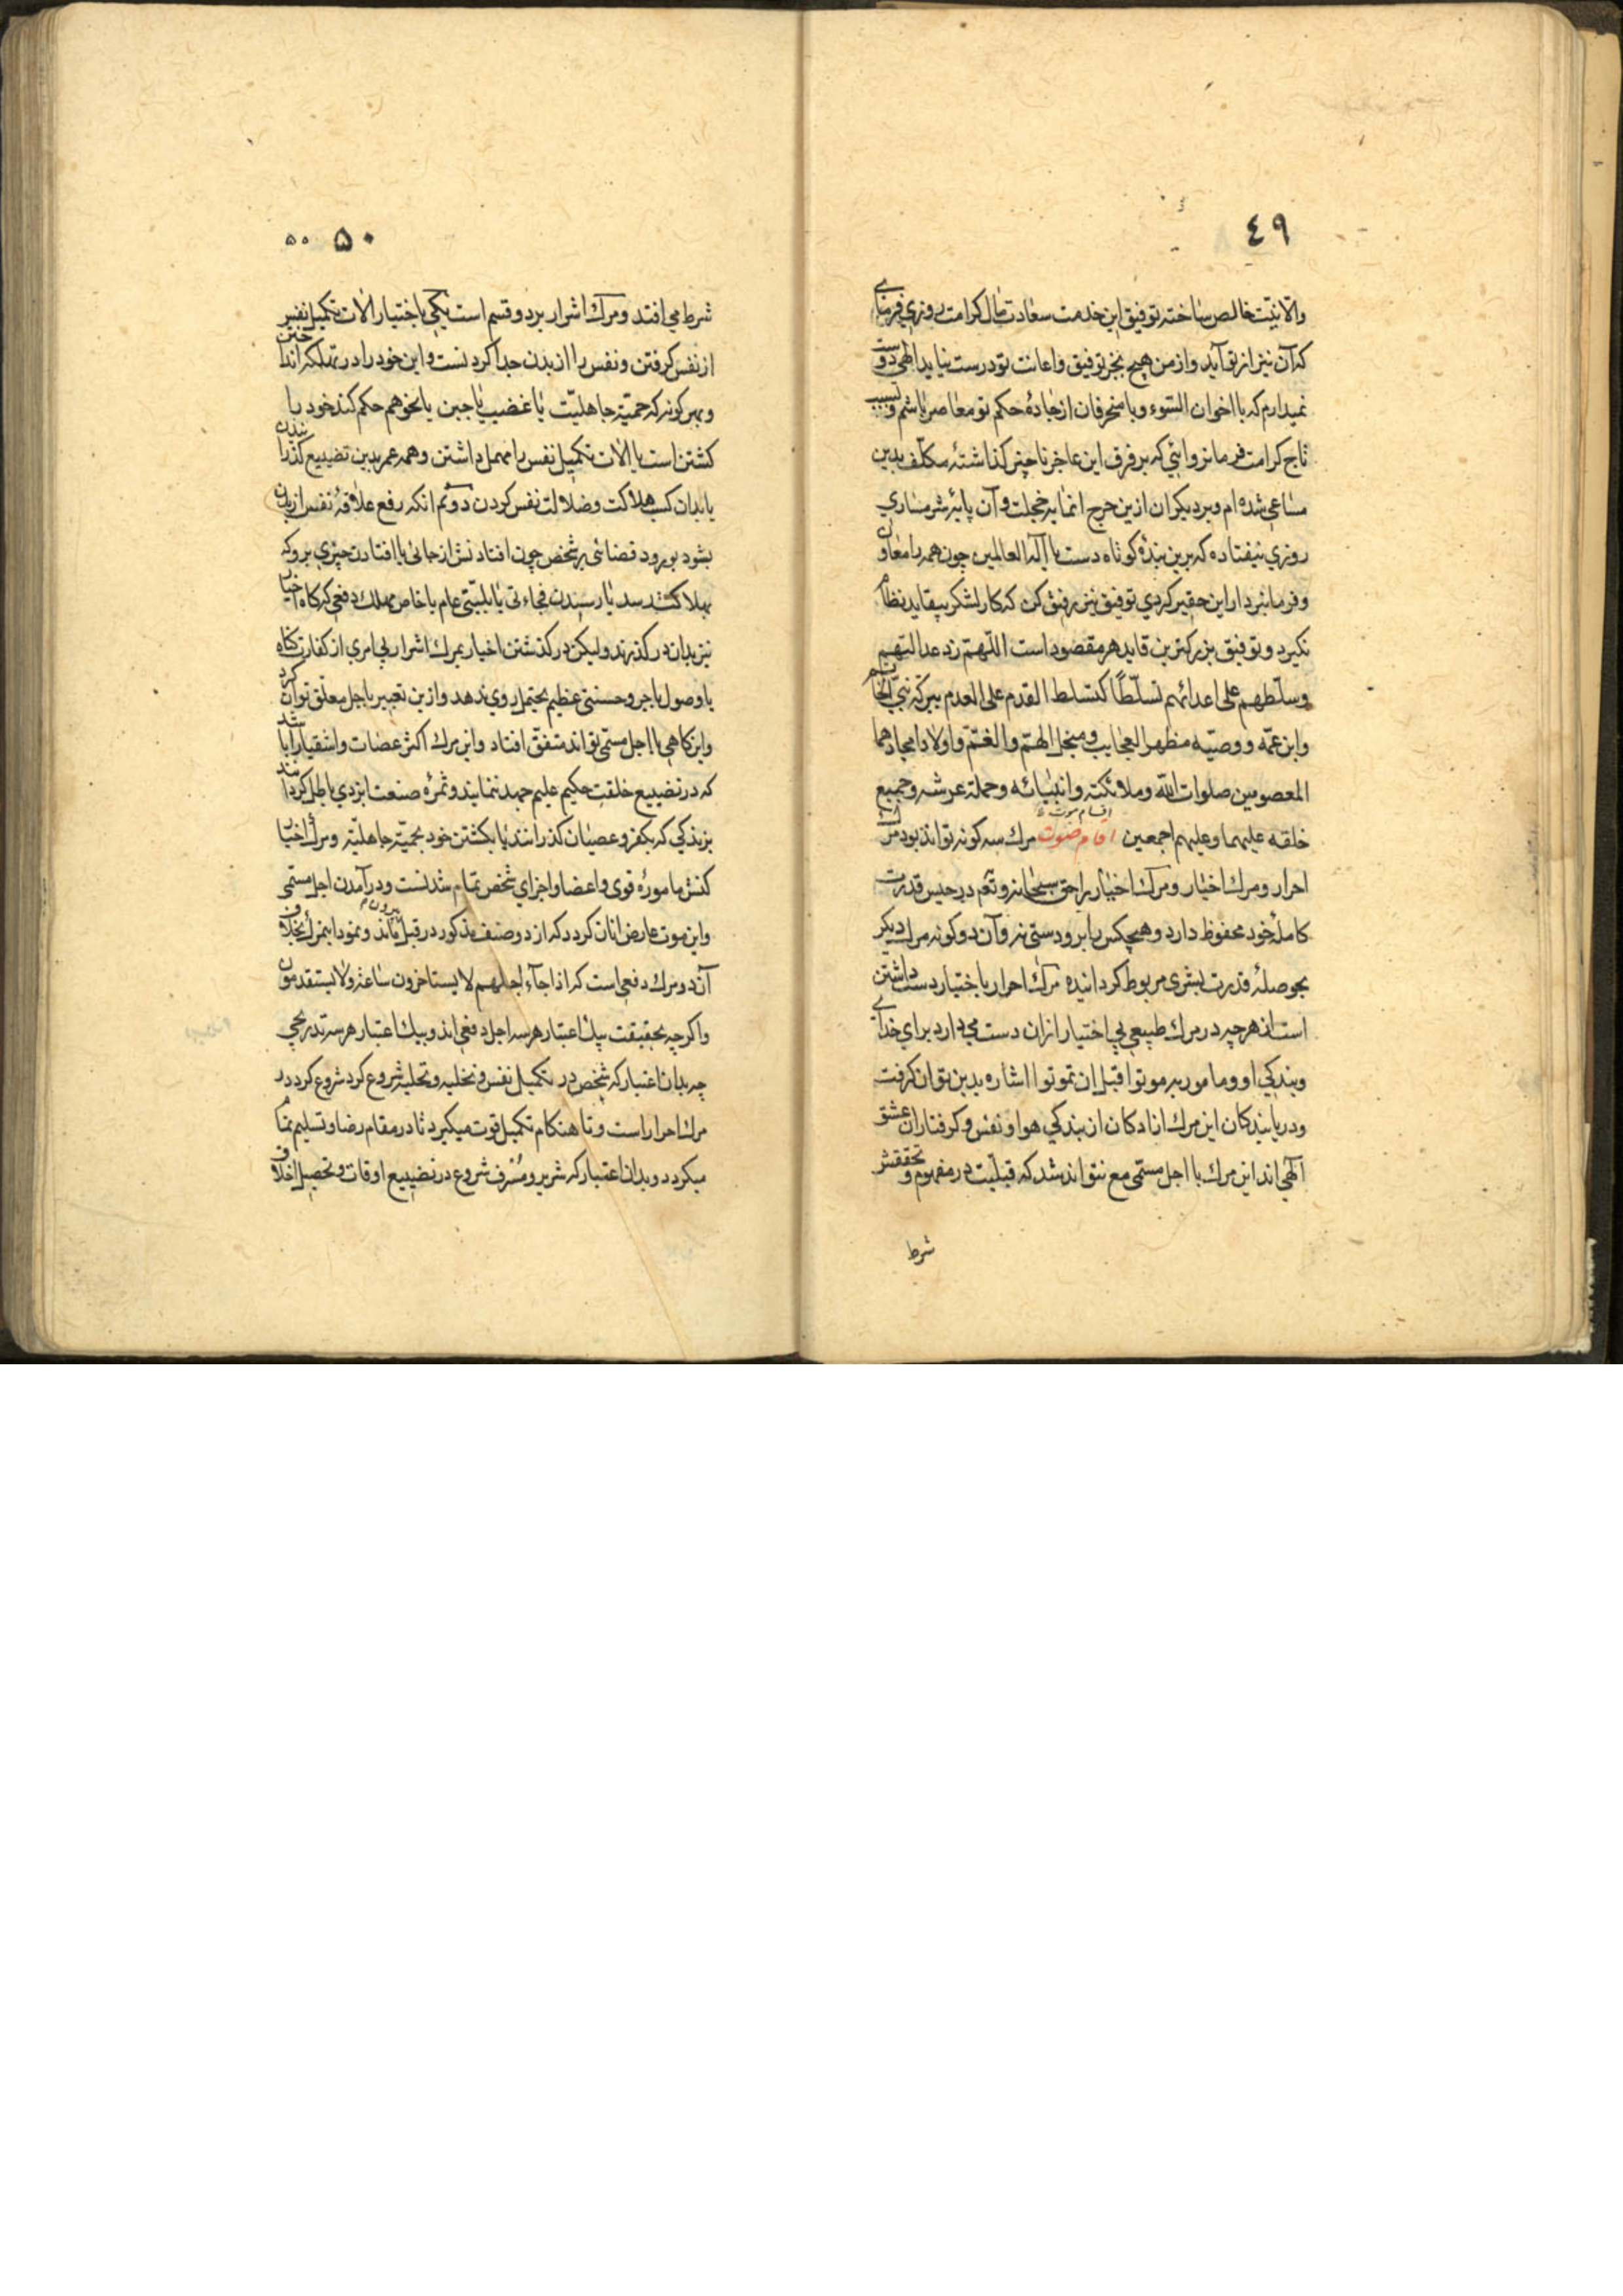 ٤٩
والا نیّت خالص ساخته توفیق این خدمت سعادت مآل کرامت روزی فرمای
که آن نیز از تو آید و از من هیچ بجز توفیق و اعانت تو درست نیاید الهی دوست
نمیدارم که با اخوان السّوء و با منحرفان از جادهٔ حکم تو معاصر باشم و بسبب
تاج کرامت فرمانروائی که بر فرق این عاجز ناچیز گذاشتهٔ مکلّف بدین
مساعی شده ام و بر دیکران ازین حرج انمایه خجلت و آن پایهٔ شرمساری
روزی نیفتاده که برین بندهٔ کوتاه دست یا آله العالمین چون همه را معاون
و فرمانبردار این حقیر کردی توفیق نیز رفیق کن که کار لشکر بیقاید نظام
نکیرد و توفیق بزرکترین قاید هر مقصود است اللّهم زد عدالتهم
وسلّطهم علی اعدائهم تسلّطاً کتسلط القدم علی العدم ببرکه نبیّ الخاتم
وابن عمّه ووصیّه مظهر العجایب ومنجل الهمّ والغمّ واولاد امجادهما
المعصومین صلوات الله وملائکته وانبیائه وحملة عرشه وجمیع
اقسام موت
خلقه علیهما وعلیهم اجمعین اقسام موت مرك سه کونه تواند بود مرك
احرار ومرك اخیار ومرك اختیار را حق سبحانه وتعم در حبس قدرت
کاملهٔ خود محفوظ دارد وهیچکس را برو دستی نه وآن دو کونه مرك دیکر
بحوصلهٔ قدرت بشری مربوط کردانیده مرك احرار باختیار دست داشتن
است از هرچه در مرك طبیعی بی اختیار ازان دست می دارد برای خدای
وبندکی او ومامور به موتوا قبل ان تموتوا اشاره بدین توان کرفت
ودریابندکان این مرك ازادکان از بندکی هوا ونفس وکرفتاران عشق
آلهی اند این مرك با اجل مسمّی مع نتواند شد که قبلیّت در مفهوم وتحققش
شرط
٥٠ ٥٠
شرط می افتد ومرك اشرار بر دو قسم است یکی باختیار الات تکمیل نفس
از نفس کرفتن ونفس را از بدن جدا کردنست واین خود را در تهلکه انداختن
وبهر کونه که حمیّة جاهلیّت یا غضب یا جبن یا نحو هم حکم کند خود را
کشتن است یا الات تکمیل نفس را مهمل داشتن وهمه عمر بدین تضییع کذرانیدن
یا بدان کسب هلاکت وضلالت نفس کردن دوّم انکه رفع علاقهٔ نفس از بدن
بشود بورود قضائی بر شخص چون افتادنش از جائی یا افتادن چیزی برو که
بهلاکت رسد یا رسیدن فجاءتی یا بلیّتی عام یا خاص مهلك دفعی که کاه اخیار
نیز بدان در کذرند ولیکن در کذشتن اخیار بمرك اشرار بی امری از کفارت کناه
یا وصول باجر وحسنتی عظیم یحتمل روی ندهد وازین تعبیر باجل معلّق توان کرد
واین کاهی با اجل مسمّی تواند متفق افتاد واین مرك اکثر عصات واشقیا را باشد
که در تضییع خلقت حکیم علیم جهد نمایند وثمرهٔ صنعت ایزدی باطل کردانند
بزندکی که بکفر وعصیان کذرانند یا بکشتن خود بحمیّة جاهلیّه ومرك اخیار
کنش ماموره قوی واعضا واجزای شخص تمام شدنست ودر آمدن اجل مسمّی
واین موت عارض انان کردد که از دو صنف مذکور در قبل بیرون ماند ونمود اینمرك بخلاف
آن دو مرك دفعی است که اذا جآء اجلهم لا یستاخرون ساعة ولا یستقدمون
واکرچه بحقیقت بیك اعتبار هر سه اجل دفعی اند وبیك اعتبار هر سه تدریجی
چه بدان اعتبار که شخص در تکمیل نفس وتخلیه وتحلیه شروع کرد شروع کردد در
مرك احرار است وتا هنکام تکمیل قوت میکیرد تا در مقام رضا وتسلیم تمام
میکردد وبدان اعتبار که شریر ومسرف شروع در تضییع اوقات وتحصیل اخلاق